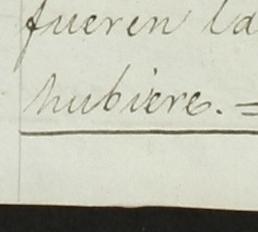 fueren la
hubiere. =